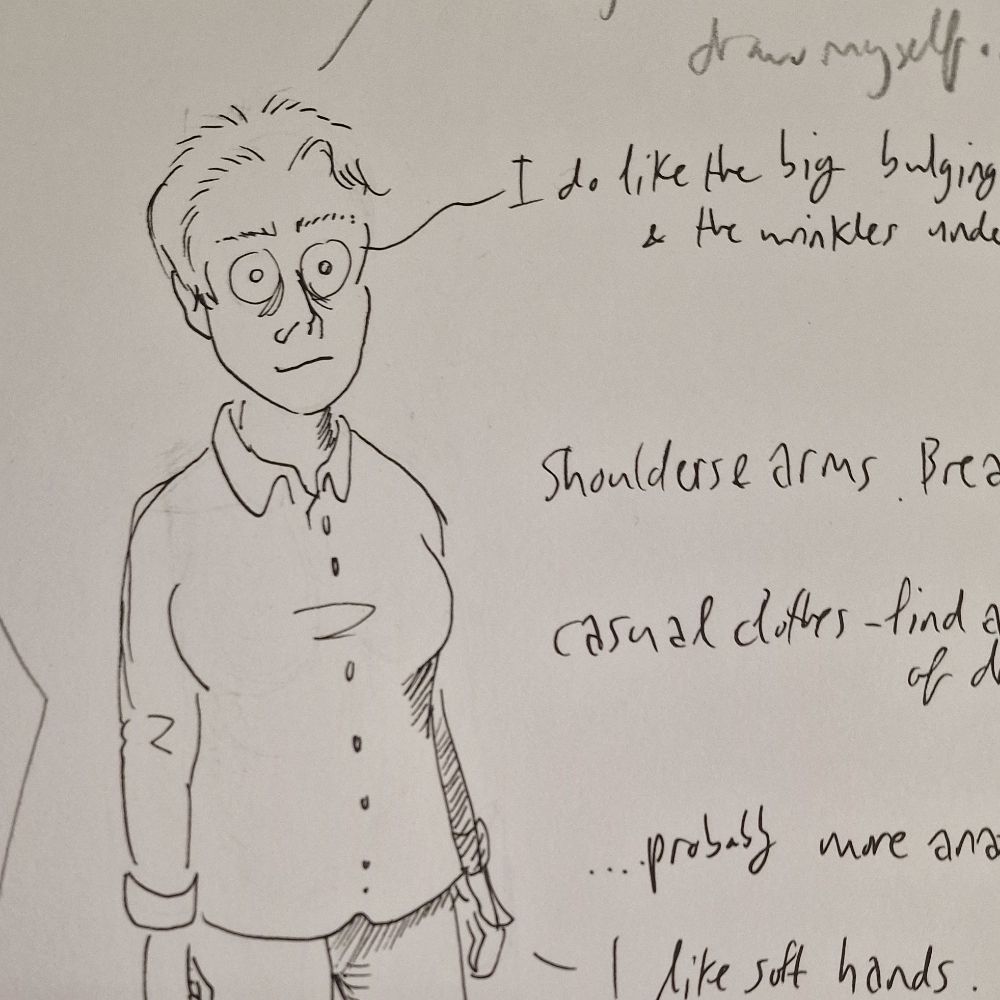 draw myself.
I do like the big bulging
& the wrinkles unde
Shoulders & arms. Brea
casual clothes - find a
of d
....probably more ana
I like soft hands.